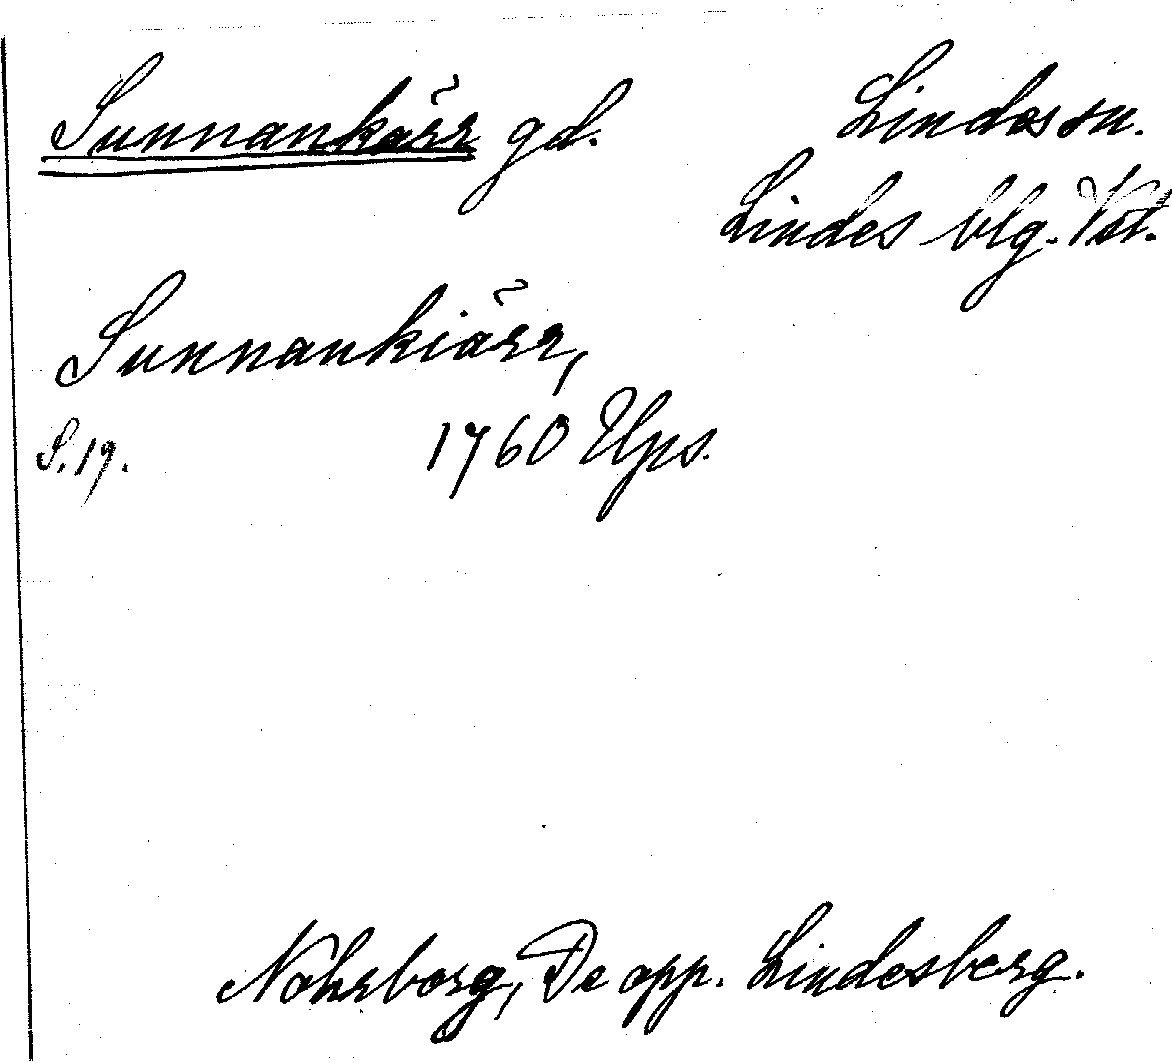 Sunnankärr gd. Lindes sn.
Lindes blg. Vstm.
Sunnankiärr,
S. 19. 1760 Ups.
Nohrborg, De opp. Lindesberg.